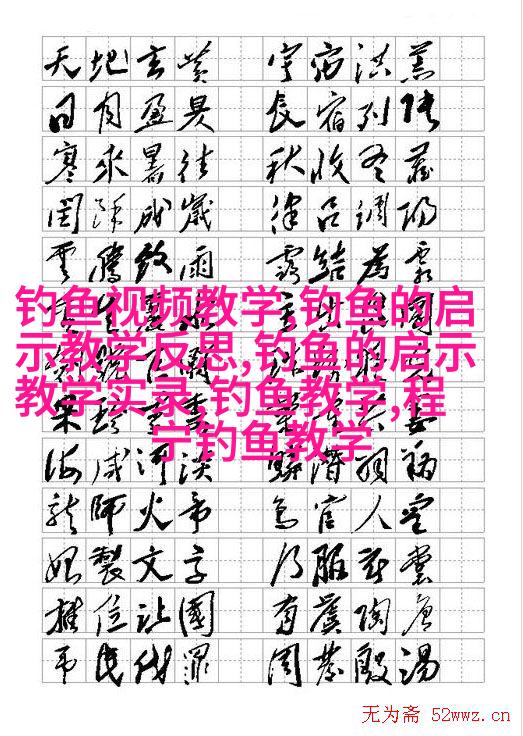 天地玄黃 宇宙洪荒
日月盈昃 辰宿列張
寒來暑往 秋收冬藏
閏餘成歲 律呂調陽
雲騰致雨 露結為霜
钓鱼视频教学,钓鱼的启
示教学反思,钓鱼的启示
教学实录,钓鱼教学,程
宁钓鱼教学
海咸河淡 鱗潛羽翔
龍師火帝 鳥官人皇
始製文字 乃服衣裳
推位讓國 有虞陶唐
弔民伐罪 周發殷湯
无为斋 52wwz.cn